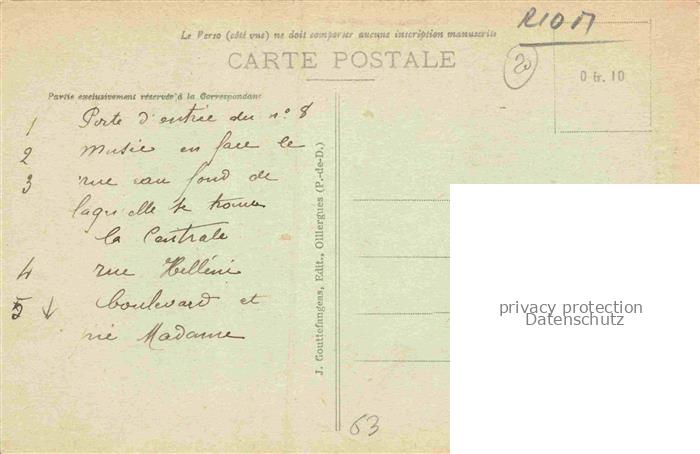 RIOM
Le Verso (côté vue) ne doit comporter aucune inscription manuscrite
CARTE POSTALE
20
0 fr. 10
Partie exclusivement réservée à la Correspondance
1 Porte d'entrée du n° 8
2 musée en face le
3 rue au fond de
laquelle se trouve
la Centrale
4 rue
5 ↓ boulevard et
Madame
J. Gouttefangeas, Edit., Olliergues (P.-de-D.)
63
privacy protection
Datenschutz